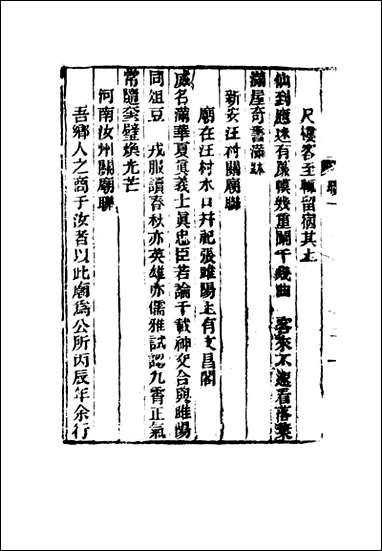 尺樓客至輒留宿其上
仙到應迷有簾幙幾重闌干幾曲 客來不速看落葉
滿屋奇書滿牀
新安汪村關廟聯
廟在汪村水口并祀張睢陽上有文昌閣
威名滿華夏真義士眞忠臣若論千載神交合與睢陽
同俎豆 戎服讀春秋亦英雄亦儒雅試認九霄正氣
常隨奎璧煥光芒
河南汝州關廟聯
吾鄉人之商于汝者以此廟爲公所丙辰年余行